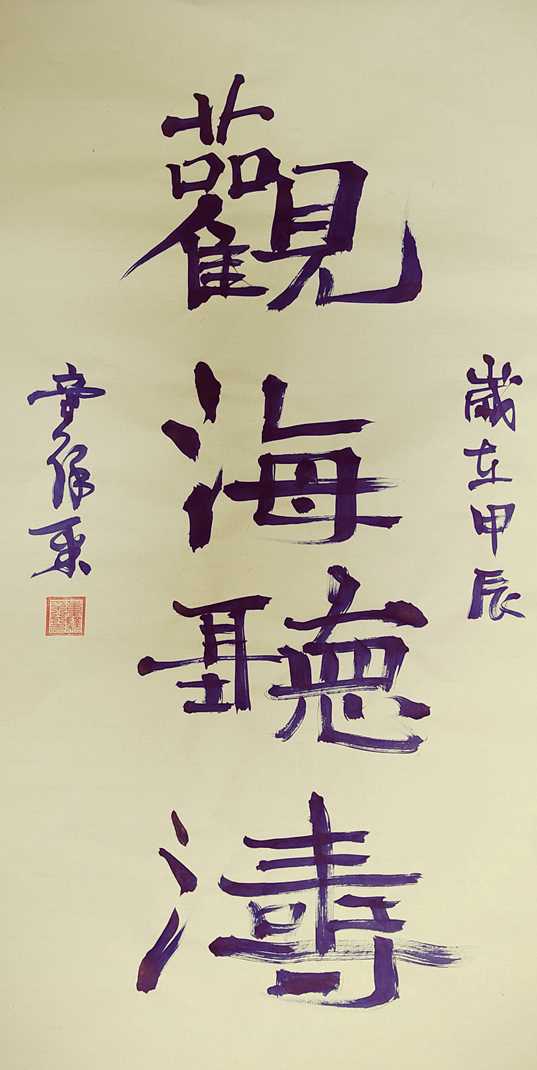 歲在甲辰
觀海聽濤